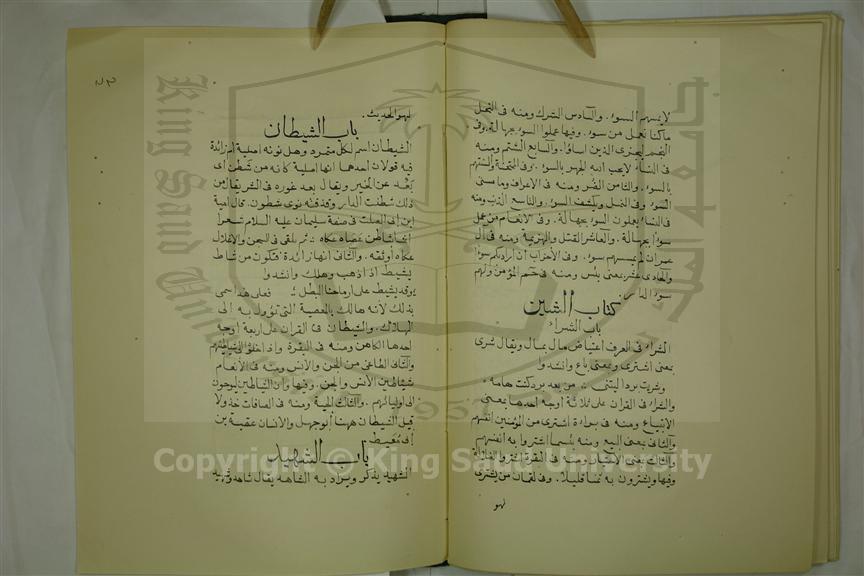 لايمسهم السوء. والسادس الشرك ومنه فى النحل
ماكنا نعمل من سوء. وفيها عملوا السوء بجهالة وفى
النجم ليجزى الذين اساؤا. والسابع الشتم ومنه
فى النساء لايحب الله الجهر بالسوء. وفى الممتحنة والسنتهم
بالسوء. والثامن الضر ومنه فى الاعراف وما مسنى
السوء وفى النمل ويكشف السوء. والتاسع الذنب ومنه
فى النساء يعملون السوء بجهالة. وفى الانعام من عمل
سوءا بجهالة. والعاشر القتل والهزيمة ومنه فى آل
عمران لم يمسسهم سوء. وفى الأحزاب ان اراد بكم سوءا
والحادى عشر بمعنى بئس ومنه فى حم المؤمن ولهم
سوء الدار.
كتاب الشين
باب الشراء
الشراء فى العرف اعتياض مال بمال ويقال شرى
بمعنى اشترى وبمعنى باع وانشدوا
وشريت بردا ليتنى من بعد برد كنت هامه
والشراء فى القران على ثلاثة أوجه احدها بمعنى
الابتياع ومنه فى براءة اشترى من المؤمنين انفسهم
والثانى بمعنى البيع ومنه بئسما اشتروا به انفسهم
والثالث بمعنى الاختيار ومنه فى البقرة اشتروا الضلالة
وفيها ويشترون به ثمنا قليلا. وفى لقمان من يشترى
لهو
لهو الحديث.
باب الشيطان
الشيطان اسم لكل متمرد وهل نونه اصلية ام زائدة
فيه قولان احدهما انها اصلية كانه من شطن اى
بعد عن الخير ويقال بعد غوره فى الشر يقال من
ذلك شطنت الدار وقذفته نوى شطون. قال امية
ابن ابى الصلت فى صفة سليمان عليه السلام شعرا
ايما شاطن عصاه عكاه ثم يلقى فى السجن والاغلال
عكاه أوثقه. والثانى انها زائدة فتكون من شاط
يشيط اذ اذهب وهلك وانشدوا
وقد يشيط على ارماحنا البطل فعلى هذا سمى
بذلك لأنه هالك بالمعصية التى تؤول به الى
الهلاك. والشيطان فى القران على اربعة اوجه
احدها الكاهن ومنه فى البقرة واذا خلوا الى شياطينهم
والثانى الطاغى من الجن والانس ومنه فى الأنعام
شياطين الأنس والجن. وفيها وان الشياطين ليوحون
الى اوليائهم. والثالث الحية ومنه فى الصافات
قيل الشيطان ههنا أبوجهل والانسان عقبة بن
أبى معيط
باب الشهيد
الشهيد يذكر ويراد به الشاهد يقال شاهد وشهيد
Copyright © King Saud University
King Saud University
1957